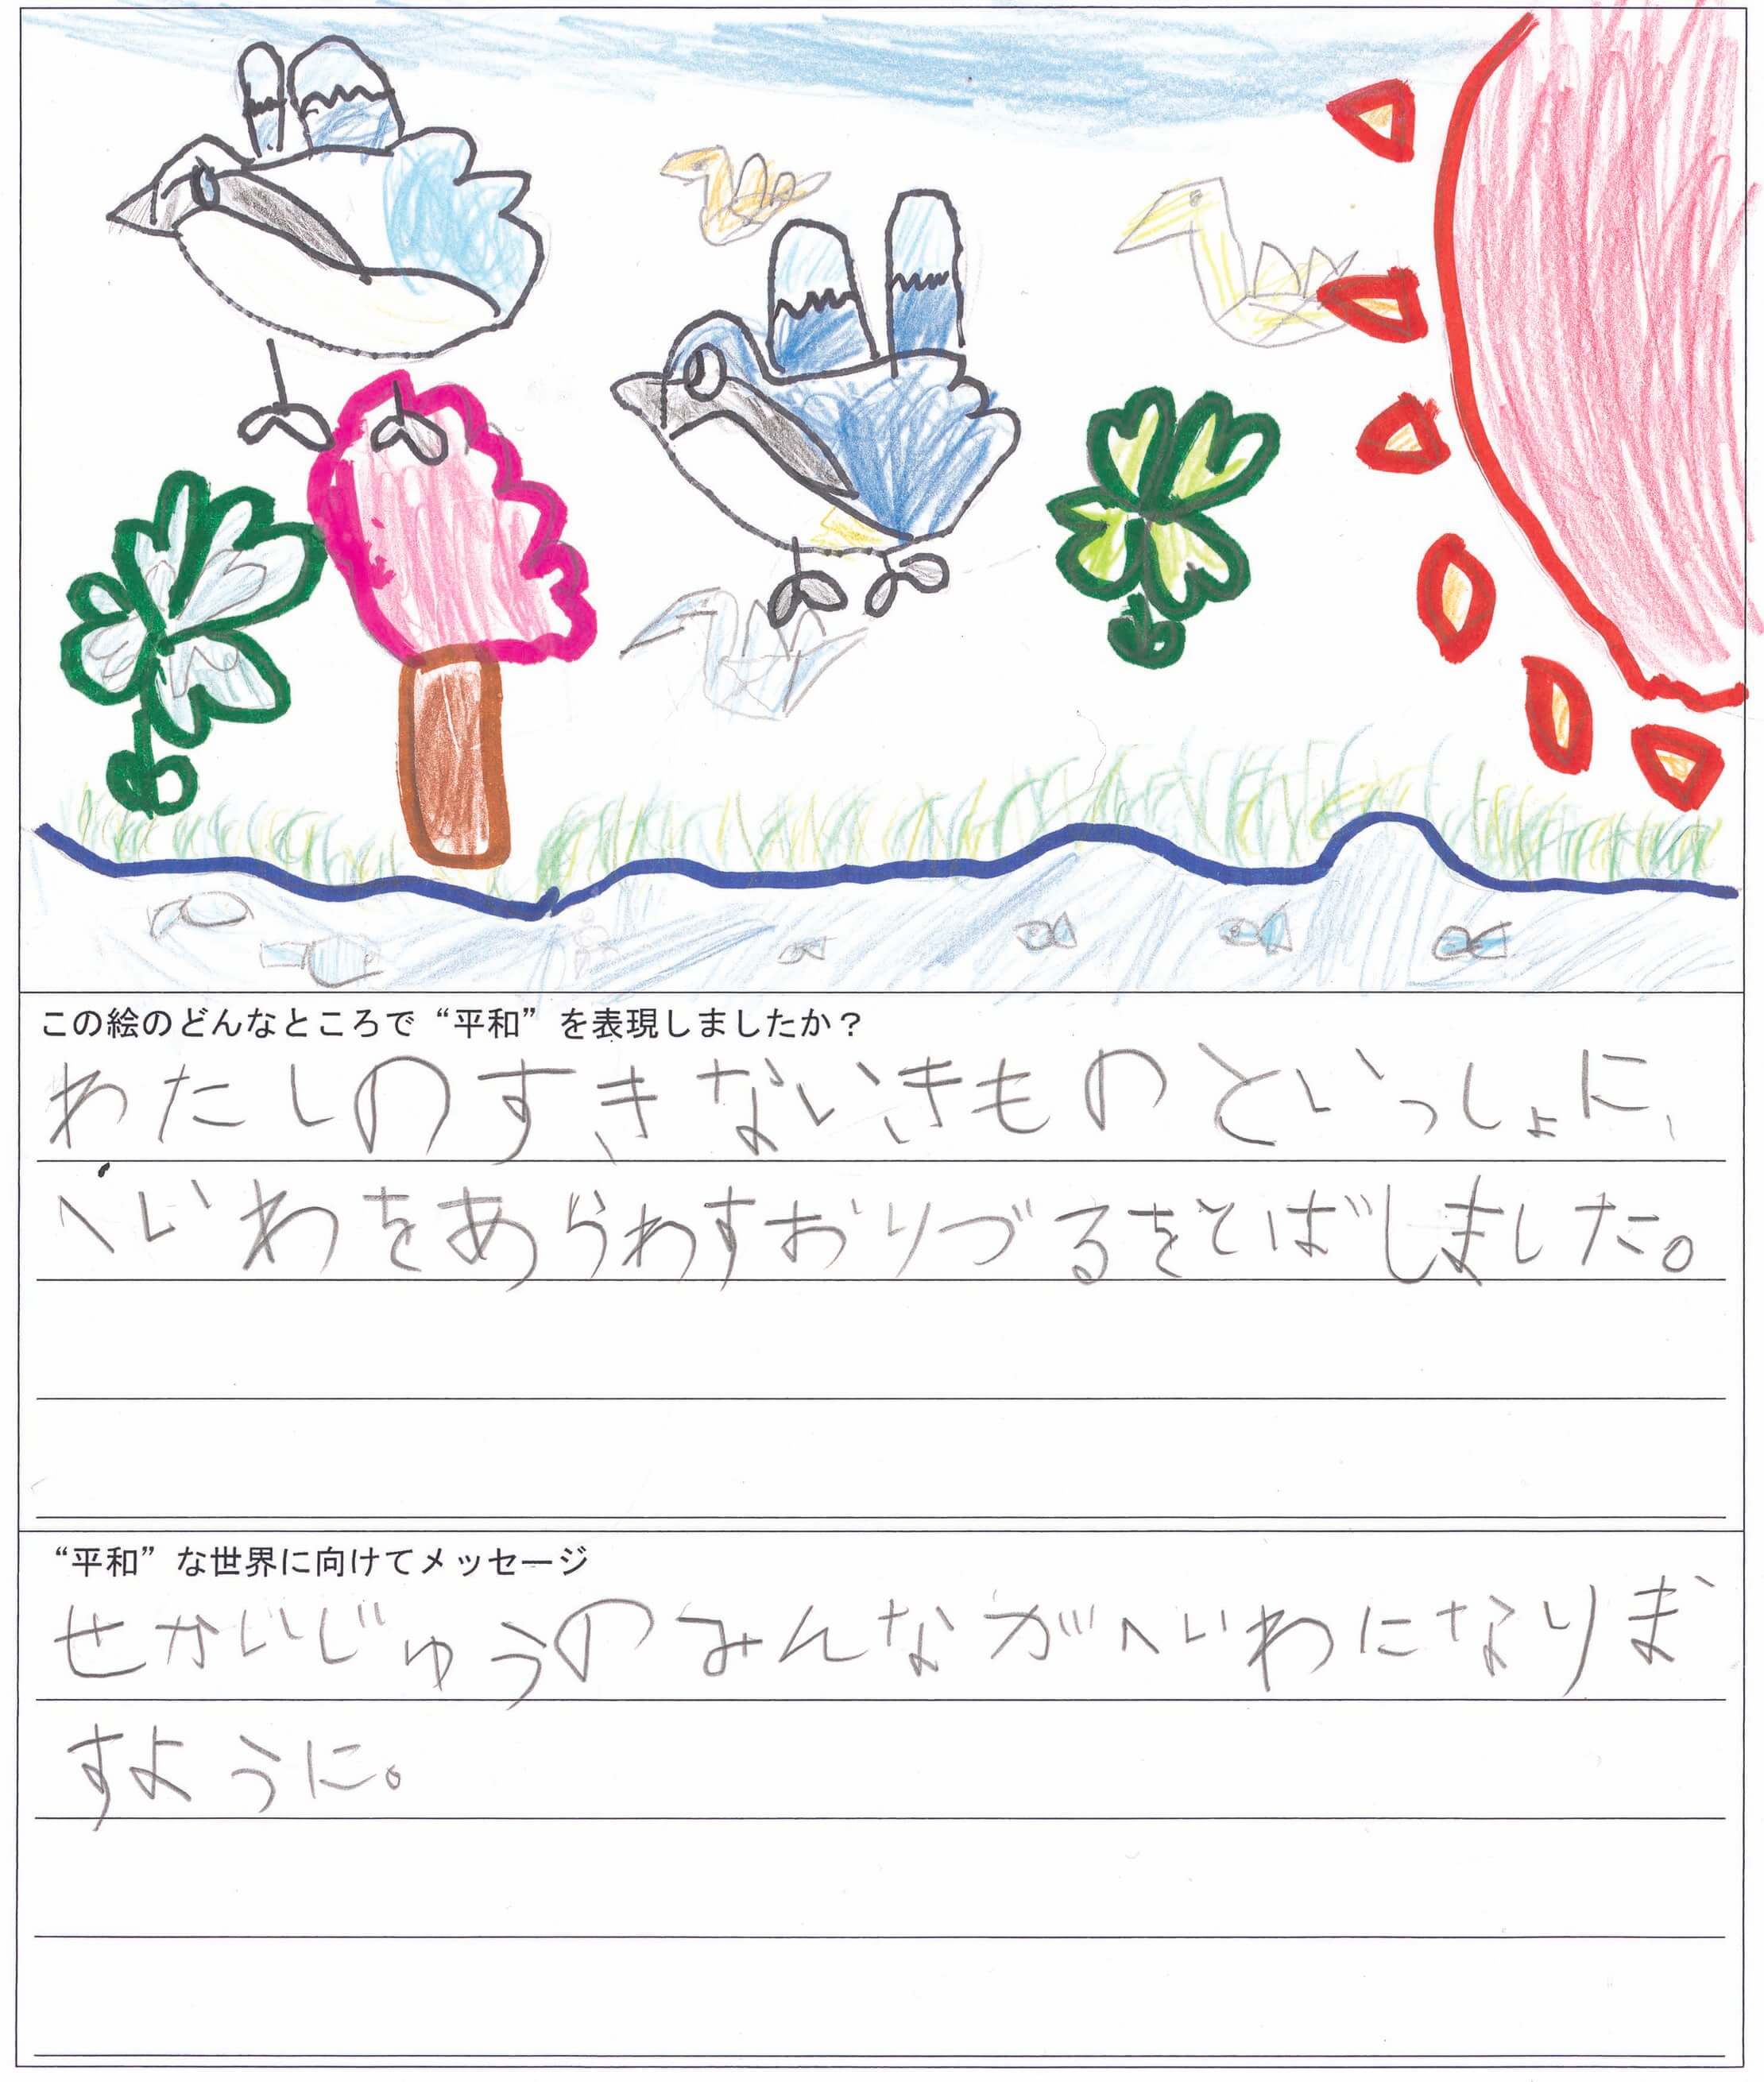 この絵のどんなところで“平和”を表現しましたか？
わたしのすきないきものといっしょに、
へいわをあらわすおりづるをとばしました。
“平和”な世界に向けてメッセージ
せかいじゅうのみんながへいわになりま
すように。